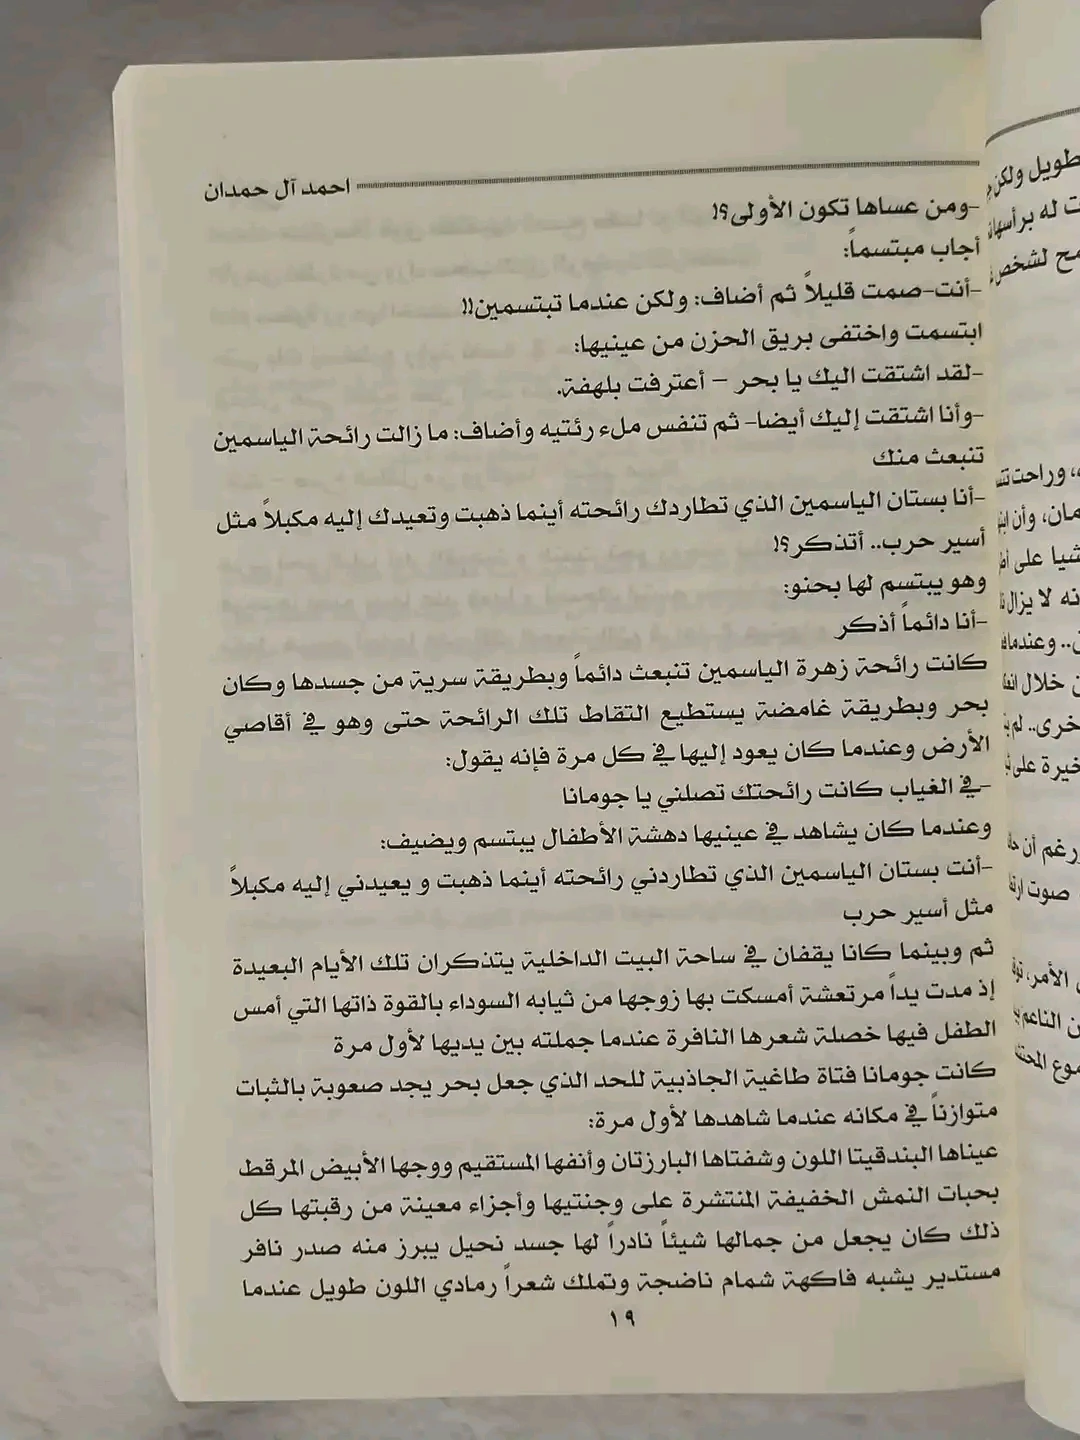 احمد آل حمدان
-ومن عساها تكون الأولى؟!
أجاب مبتسماً:
-أنت-صمت قليلاً ثم أضاف: ولكن عندما تبتسمين!!
ابتسمت واختفى بريق الحزن من عينيها:
-لقد اشتقت اليك يا بحر – أعترفت بلهفة.
-وأنا اشتقت إليك أيضا- ثم تنفس ملء رئتيه وأضاف: ما زالت رائحة الياسمين
تنبعث منك
-أنا بستان الياسمين الذي تطاردك رائحته أينما ذهبت وتعيدك إليه مكبلاً مثل
أسير حرب.. أتذكر؟!
وهو يبتسم لها بحنو:
-أنا دائماً أذكر
كانت رائحة زهرة الياسمين تنبعث دائماً وبطريقة سرية من جسدها وكان
بحر وبطريقة غامضة يستطيع التقاط تلك الرائحة حتى وهو في أقاصي
الأرض وعندما كان يعود إليها في كل مرة فإنه يقول:
-في الغياب كانت رائحتك تصلني يا جومانا
وعندما كان يشاهد في عينيها دهشة الأطفال يبتسم ويضيف:
-أنت بستان الياسمين الذي تطاردني رائحته أينما ذهبت و يعيدني إليه مكبلاً
مثل أسير حرب
ثم وبينما كانا يقفان في ساحة البيت الداخلية يتذكران تلك الأيام البعيدة
إذ مدت يداً مرتعشة أمسكت بها زوجها من ثيابه السوداء بالقوة ذاتها التي أمس
الطفل فيها خصلة شعرها النافرة عندما جملته بين يديها لأول مرة
كانت جومانا فتاة طاغية الجاذبية للحد الذي جعل بحر يجد صعوبة بالثبات
متوازناً في مكانه عندما شاهدها لأول مرة:
عيناها البندقيتا اللون وشفتاها البارزتان وأنفها المستقيم ووجها الأبيض المرقط
بحبات النمش الخفيفة المنتشرة على وجنتيها وأجزاء معينة من رقبتها كل
ذلك كان يجعل من جمالها شيئاً نادراً لها جسد نحيل يبرز منه صدر نافر
مستدير يشبه فاكهة شمام ناضجة وتملك شعراً رمادي اللون طويل عندما
١٩